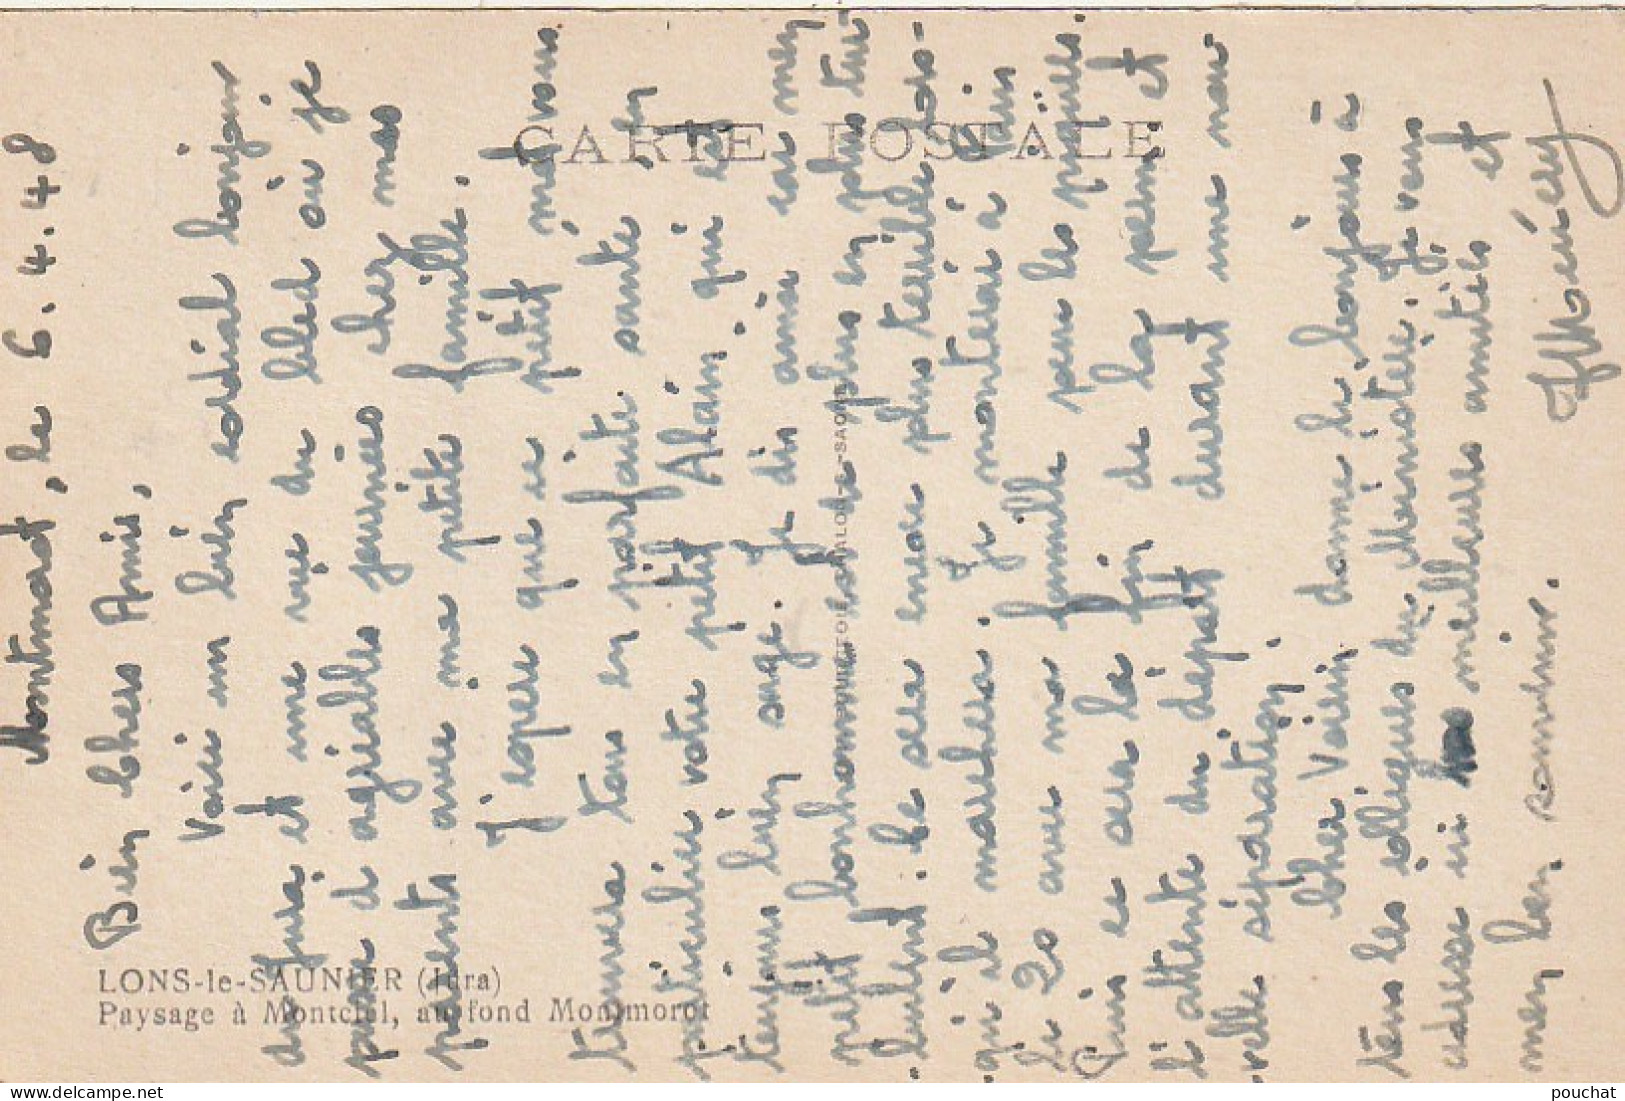 CARTE POSTALE
LONS-le-SAUNIER (Jura)
Paysage à Montciel, au fond Montmorot
Montmorot, le 6.4.48
Bien chers Amis,
Voici un bien cordial bonjour
du Jura et une vue du bled où je
passe d'agréables journées chez mes
parents avec ma petite famille.
J'espère que ce petit mot vous
trouvera tous en parfaite santé en
particulier votre petit Alain, qui est
toujours bien sage. Je dis ainsi car mon
petit bonhomme est de plus en plus tur-
bulent. Ce sera encore plus terrible lors-
qu'il marchera. Je monterai à Paris
le 20 avec ma famille pour les pâques.
Puis ce sera la fin de la perm et
l'attente du départ durant une nou-
velle séparation.
Cher Voisin donne le bonjour à
tous les collègues du Ministère. Je vous
adresse ici meilleures amitiés et
mon bon souvenir.
pouchat